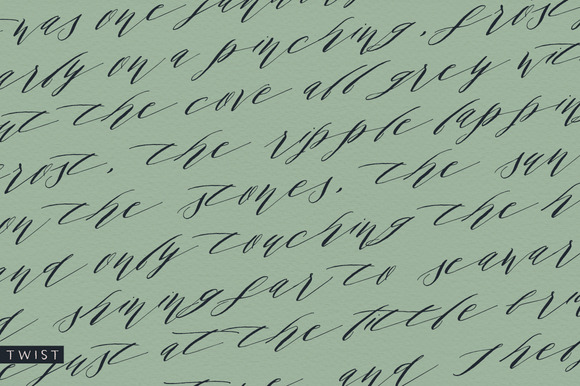 was one
arly on a pinching, frost
at the cove all grey wit
rost, the ripple lappin
on the stones, the sun
and only touching the h
d shining far to seawar
just at the little bri
and
TWIST